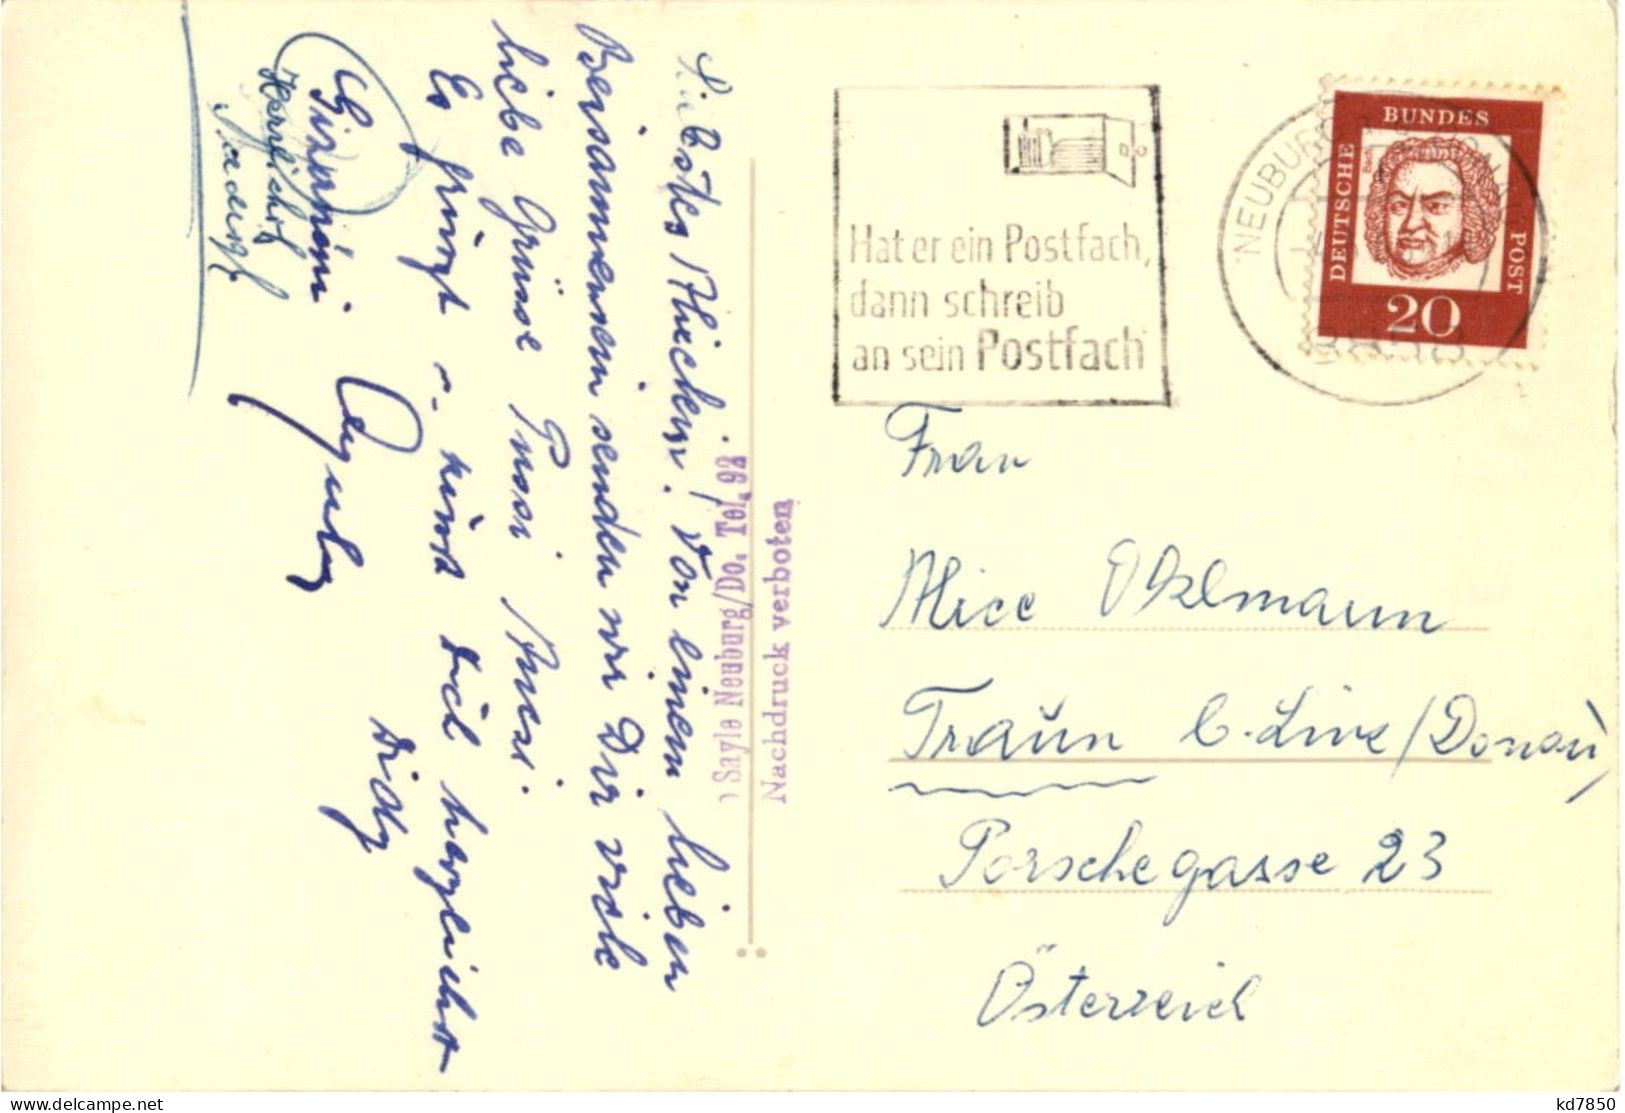 Liebstes Alicchen! Von einem lieben
Beisammensein senden wir Dir viele
liebe Grüsse Pussi
Es grüsst u. küsst Dich herzlichst
Didy
Herzlichst
Sayle Neuburg/Do. Tel. 92
Nachdruck verboten
Hat er ein Postfach,
dann schreib
an sein Postfach
NEUBURG
DEUTSCHE BUNDES POST
Bach
20
Frau
Alice Ohlmann
Traun b. Linz/Donau
Porschegasse 23
Österreich
delcampe.net
kd7850